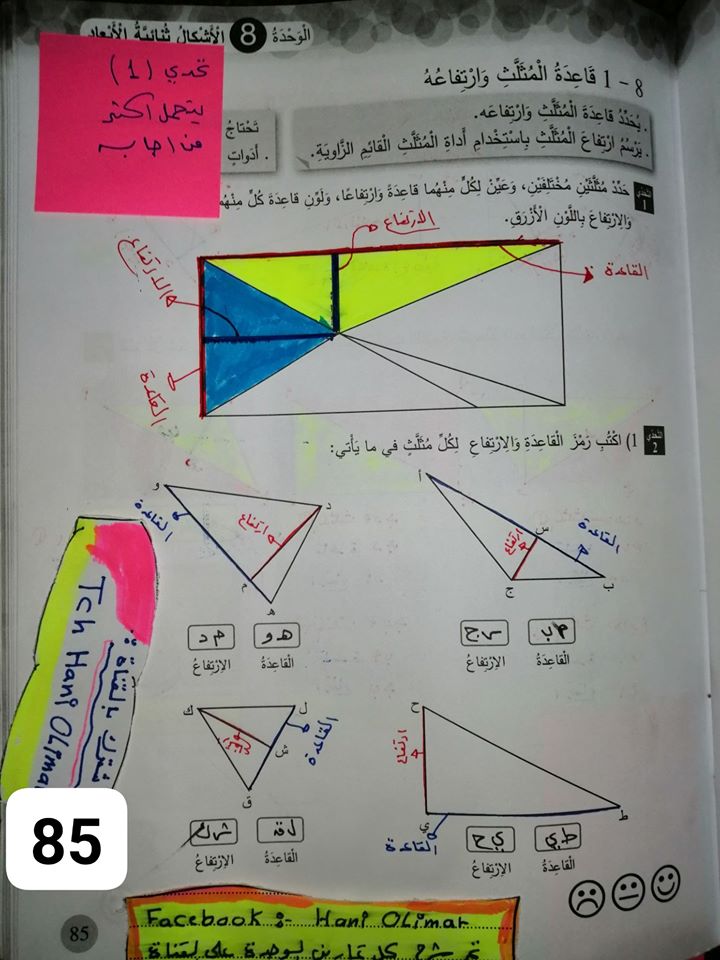 الْوَحْدَةُ 8 الْأَشْكَالُ ثُنَائِيَّةُ الْأَبْعَادِ
تحدي (1)
يتحمل اكثر
من اجابه
8 - 1 قَاعِدَةُ الْمُثَلَّثِ وَارْتِفاعُهُ
. يُحَدِّدُ قَاعِدَةَ الْمُثَلَّثِ وَارْتِفاعَه.
. يَرْسُمُ ارْتِفاعَ الْمُثَلَّثِ بِاسْتِخْدامِ أَداةِ الْمُثَلَّثِ القائِمِ الزَّاوِيَةِ.
تَحْتاجُ
. أَدَواتٍ
التَّحَدّي 1
حَدِّدْ مُثَلَّثَيْنِ مُخْتَلِفَيْنِ، وَعَيِّنْ لِكُلٍّ مِنْهُما قاعِدَةً وَارْتِفاعًا، وَلَوِّنِ قاعِدَةَ كُلٍّ مِنْهُما
وَالِارْتِفاعَ بِاللَّوْنِ الْأَزْرَقِ.
الارتفاع
القاعدة
الارتفاع
القاعدة
التَّحَدّي 2
1) اكْتُبْ رَمْزَ الْقاعِدَةِ وَالِارْتِفاعِ لِكُلِّ مُثَلَّثٍ في ما يَأْتي:
أ
س
القاعدة
ارتفاع
ج
ب
و
د
القاعدة
ارتفاع
ح
هـ
سج
هو
الْقاعِدَةُ
الِارْتِفاعُ
الْقاعِدَةُ
الِارْتِفاعُ
ح
ارتفاع
ي
ط
القاعدة
ك
ل
ش
ق
القاعدة
طي
يح
الْقاعِدَةُ
الِارْتِفاعُ
الْقاعِدَةُ
الِارْتِفاعُ
Tch Hani Olimat
85
85
Facebook :- Hani Olimat